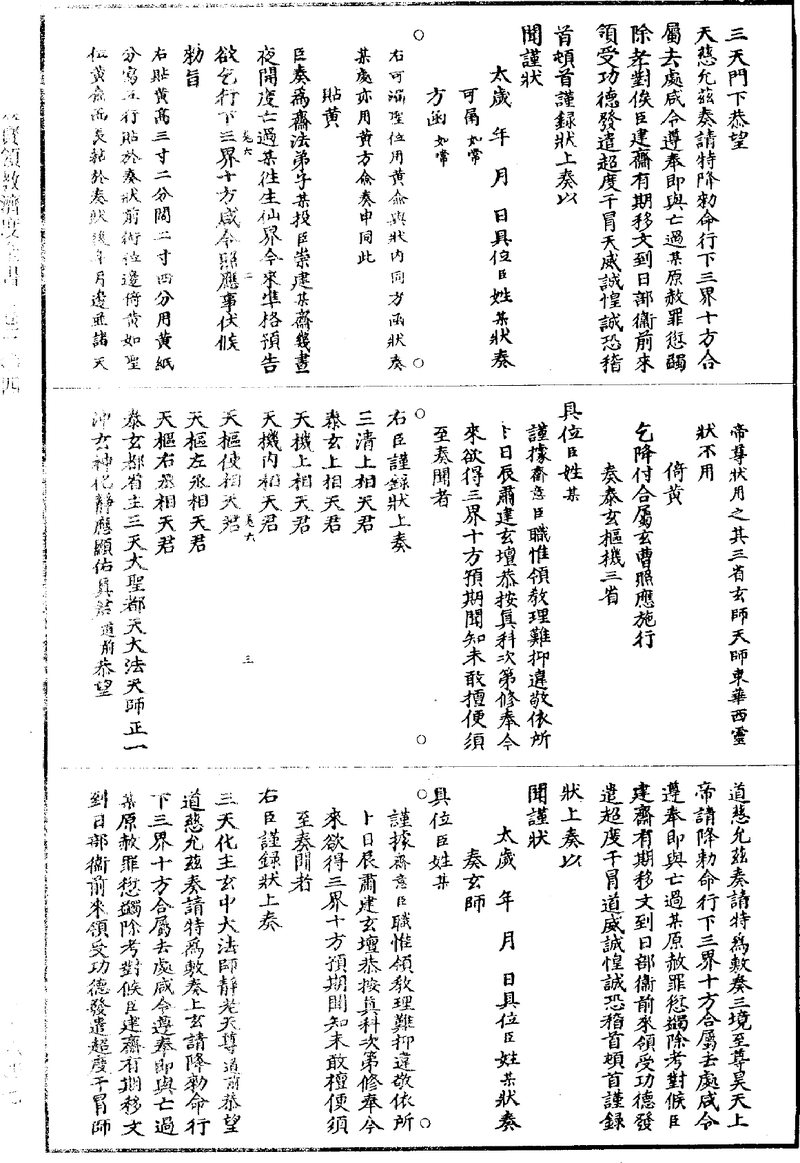 三天門下恭望
天慈允茲奏請特降勑命行下三界十方合
屬去處咸令遵奉即與亡過某原赦罪愆蠲
除考對俟臣建齋有期移文到日部衞前來
領受功德發遣超度干冒天威誠惶誠恐稽
首頓首謹錄狀上奏以
聞謹狀
太歲 年 月 日具位臣姓某狀奏
可漏如常
方函如常
右可漏聖位用黃僉與狀內同方函狀奏
某處亦用黃方僉奏申同此
貼黃
臣奏爲齋法弟子某投臣崇建某齋幾晝
夜開度亡過某往生仙界今來準格預告
欲乞行下三界十方咸令照應事伏候
勑旨
右貼黃高三寸二分闊二寸四分用黃紙
分寫五行貼於奏狀前銜位邊倚黃如聖
位黃僉而長貼於奏狀後年月邊亞諸天
帝尊狀用之其三省玄師天師東華西靈
狀不用
倚黃
乞降付合屬玄曹照應施行
奏泰玄樞機三省
具位臣姓某
謹據齋意臣職惟領教理難抑違敬依所
卜日辰肅建玄壇恭按眞科次第修奉今
來欲得三界十方預期聞知未敢擅便須
至奏聞者
右臣謹錄狀上奏
三清上相天君
泰玄上相天君
天機上相天君
天機內相天君
天樞使相天君
天樞左丞相天君
天樞右丞相天君
泰玄都省主三天大聖都天大法天師正一
沖玄神化靜應顯佑眞君道前恭望
道慈允茲奏請特爲敷奏三境至尊昊天上
帝請降勑命行下三界十方合屬去處咸令
遵奉即與亡過某原赦罪愆蠲除考對候臣
建齋有期移文到日部衞前來領受功德發
遣超度干冒道威誠惶誠恐稽首頓首謹錄
狀上奏以
聞謹狀
太歲 年 月 日具位臣姓某狀奏
奏玄師
具位臣姓某
謹據齋意臣職惟領教理難抑違敬依所
卜日辰肅建玄壇恭按眞科次第修奉今
來欲得三界十方預期聞知未敢擅便須
至奏聞者
右臣謹錄狀上奏
三天化主玄中大法師靜老天尊道前恭望
道慈允茲奏請特爲敷奏上玄請降勑命行
下三界十方合屬去處咸令遵奉即與亡過
某原赦罪愆蠲除考對候臣建齋有期移文
到日部衞前來領受功德發遣超度干冒師